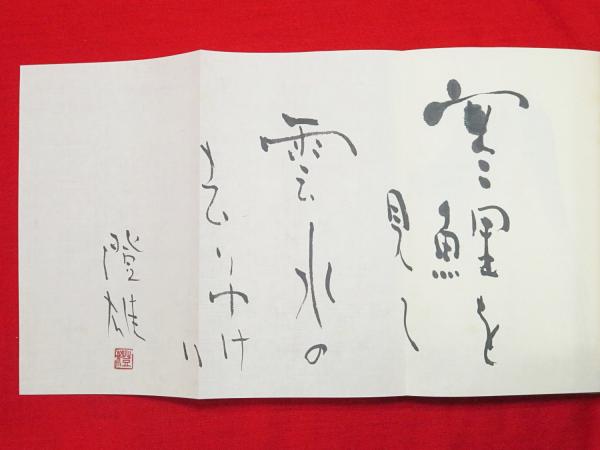 寒鯉を
見て
雲水の
去りゆけ
り
澄雄